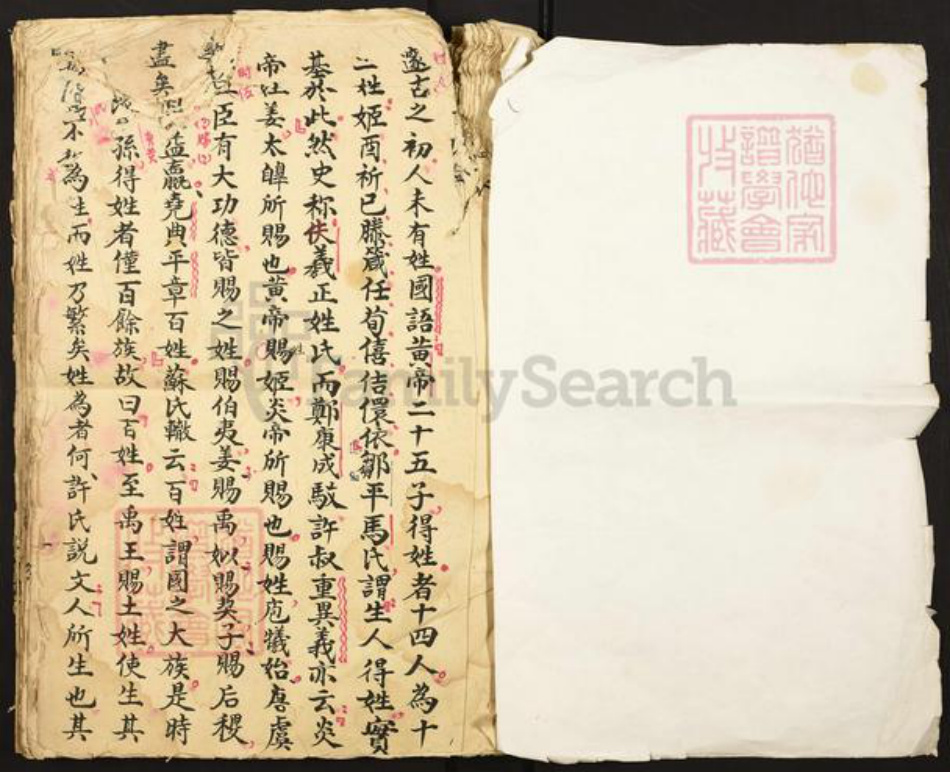 邃古之初人未有姓國語黃帝二十五子得姓者十四人為十
二姓姬酉祈已滕箴任荀僖佶儇依鄒平馬氏謂生人得姓實
基於此然史称伕羲正姓氏而鄭康成駁許叔重異義亦云炎
帝姓姜太皡所賜也黃帝賜姬炎帝所賜也賜姓庖犧始唐虞
臣有大功德皆賜之姓賜伯夷姜賜禹姒賜契子賜后稷
盡矣 嬴堯典平章百姓蘇氏轍云百姓謂國之大族是時
孫得姓者僅百餘族故曰百姓至禹王賜土姓使生其
不 為生而姓乃繁矣姓為者何許氏説文人所生也其
譜學會
收藏
FamilySearch